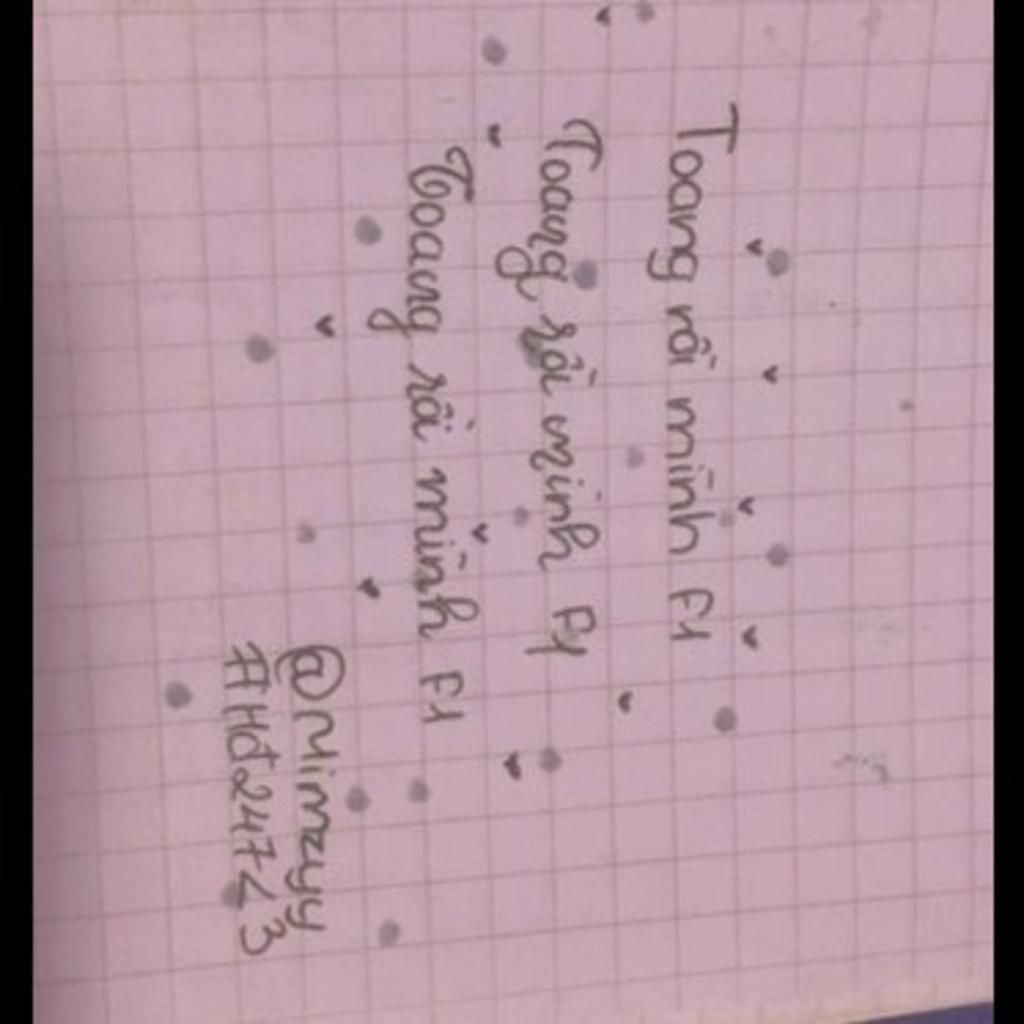 Toang rồi mình F1
Toang rồi mình F1
Toang rồi mình F1
@Mimzyy
#Hđ247<3